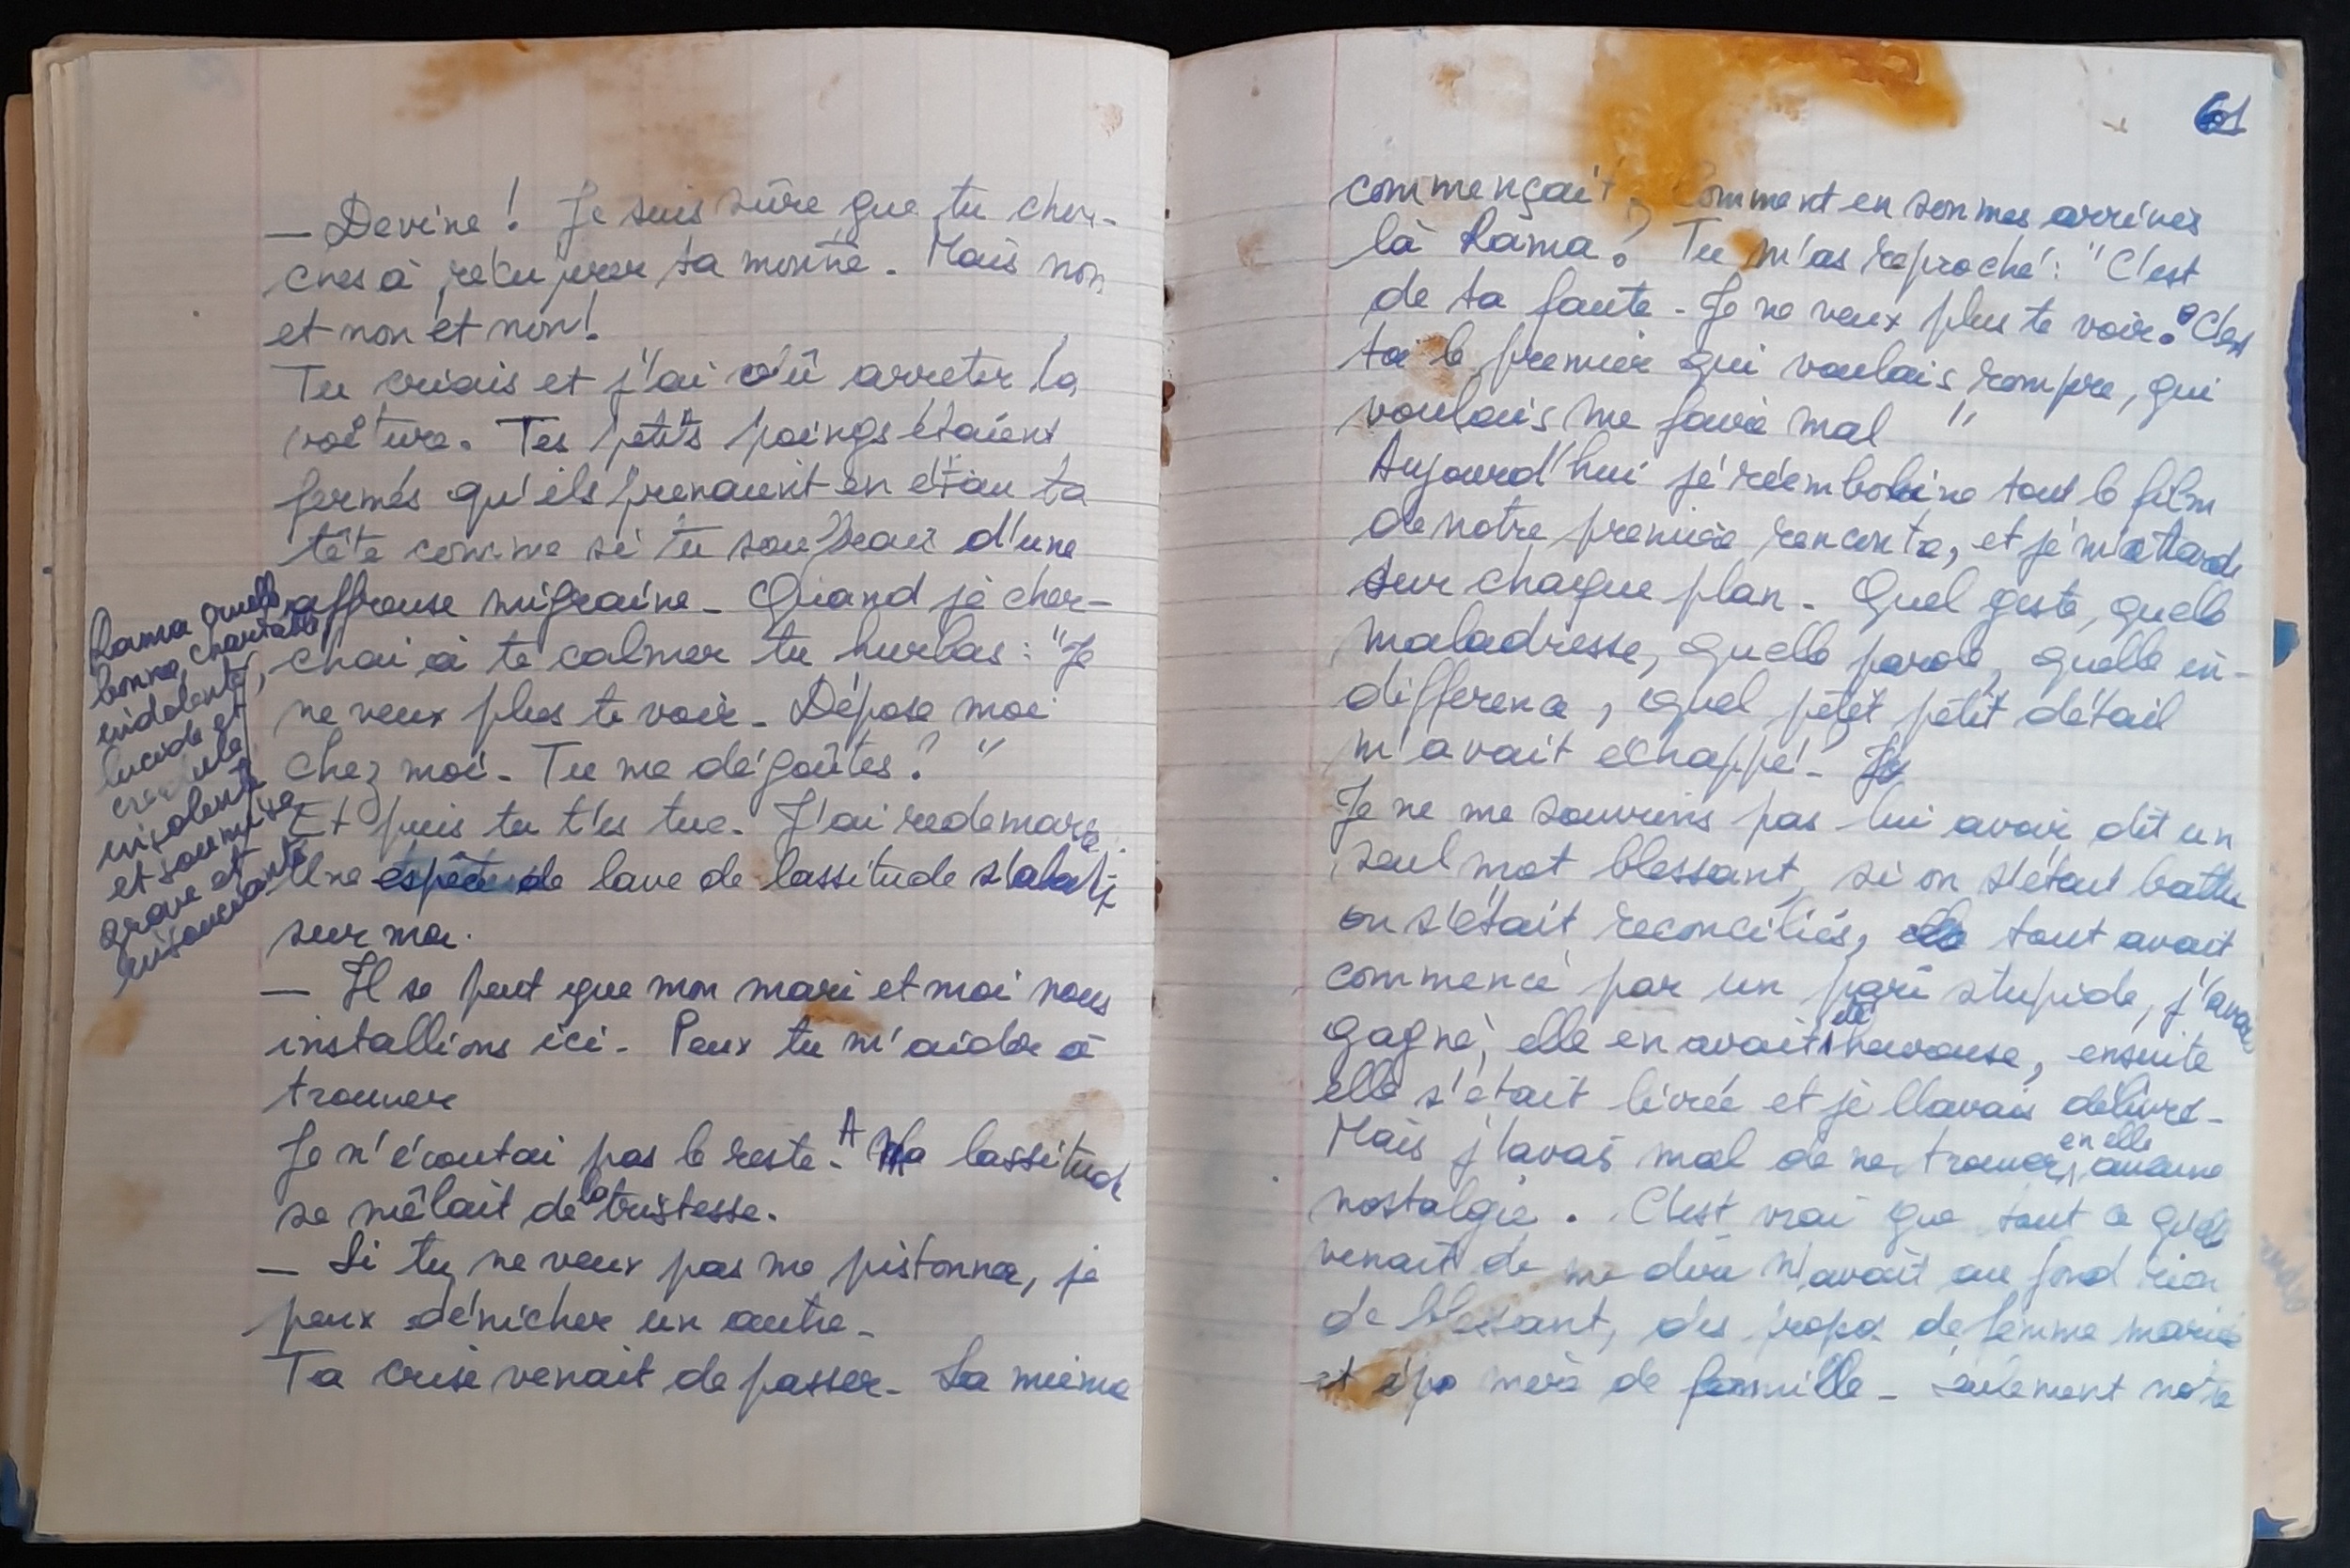 — Devine ! Je suis sûre que tu cher-
ches à récuperer ta montre. Mais non
et non et non !
Tu criais et j'ai dû arreter la
voiture. Tes petits poings étaient
fermés qu'ils prenaient en étau ta
tête comme si tu souffrais d'une
affreuse migraine - Quand je cher-
chai à te calmer tu hurlas : "Je
ne veux plus te voir - Dépose moi
chez moi - Tu me dégoûtes ! "
Et puis tu t'es tue. J'ai redemarré.
Une espèce de lave de lassitude s'abatit
sur moi.
— Il se peut que mon mari et moi nous
installions ici - Peux tu m'aider à
trouver
Je n'écoutai pas le reste - A Ma lassitude
se mêlait de la tristesse.
— Si tu ne veux pas me pistonner, je
peux dénicher un autre -
Ta crise venait de passer - La mienne
Rama cruelle
bonne, chantante,
indolente,
lucide et
crédule
insolente
et soumise
grave et
insouciante
61
commençait, Comment en sommes arrivés
là Rama ? Tu m'as reproché : "C'est
de ta faute - Je ne veux plus te voir. C'est
toi le premier qui voulais rompre, qui
voulais me faire mal "
Aujourd'hui je réembobine tout le film
de notre première rencontre, et je m'attarde
sur chaque plan - Quel geste, quelle
maladresse, quelle parole, quelle in-
difference, quel petit petit détail
m'avait échappé - Je
Je ne me souviens pas lui avoir dit un
seul mot blessant, si on s'était battu
on s'était reconciliés, elle tout avait
commencé par un pari stupide, j'avais
gagné, elle en avait été heureuse, ensuite
elle s'était livrée et je l'avais délivré -
Mais j'avais mal de ne trouver en elle aucune
nostalgie . C'est vrai que tout ce qu'elle
venait de me dire n'avait au fond rien
de blessant, des propos de femme mariée
et mère de famille - seulement notre